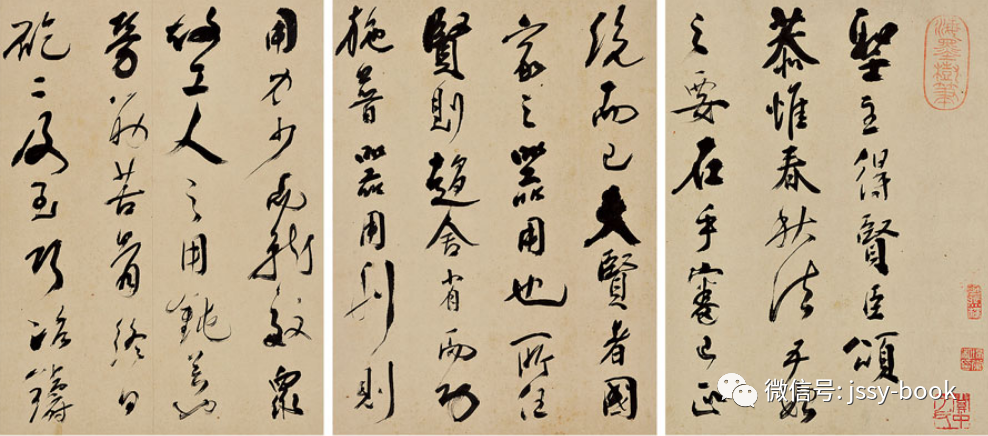 聖主得賢臣頌
恭惟春秋法五始
之要在乎審己正
統而已夫賢者國
家之器用也所任
賢則趨舍省而功
施普器用利則
用力少而就效眾
故工人之用鈍器也
勞筋苦骨終日
矻〻及至巧冶鑄
微信号: jssy-book